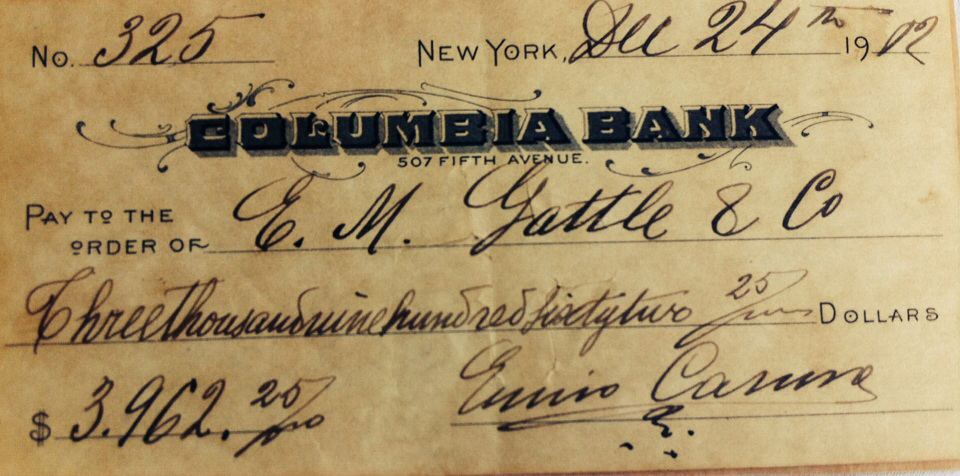 No. 325 NEW YORK, Dec 24th 1912
COLUMBIA BANK
507 FIFTH AVENUE.
PAY TO THE
ORDER OF E. M. Gattle & Co
Three thousand nine hundred sixty two 25/100 DOLLARS
$ 3.962.25/00
Enrico Caruso